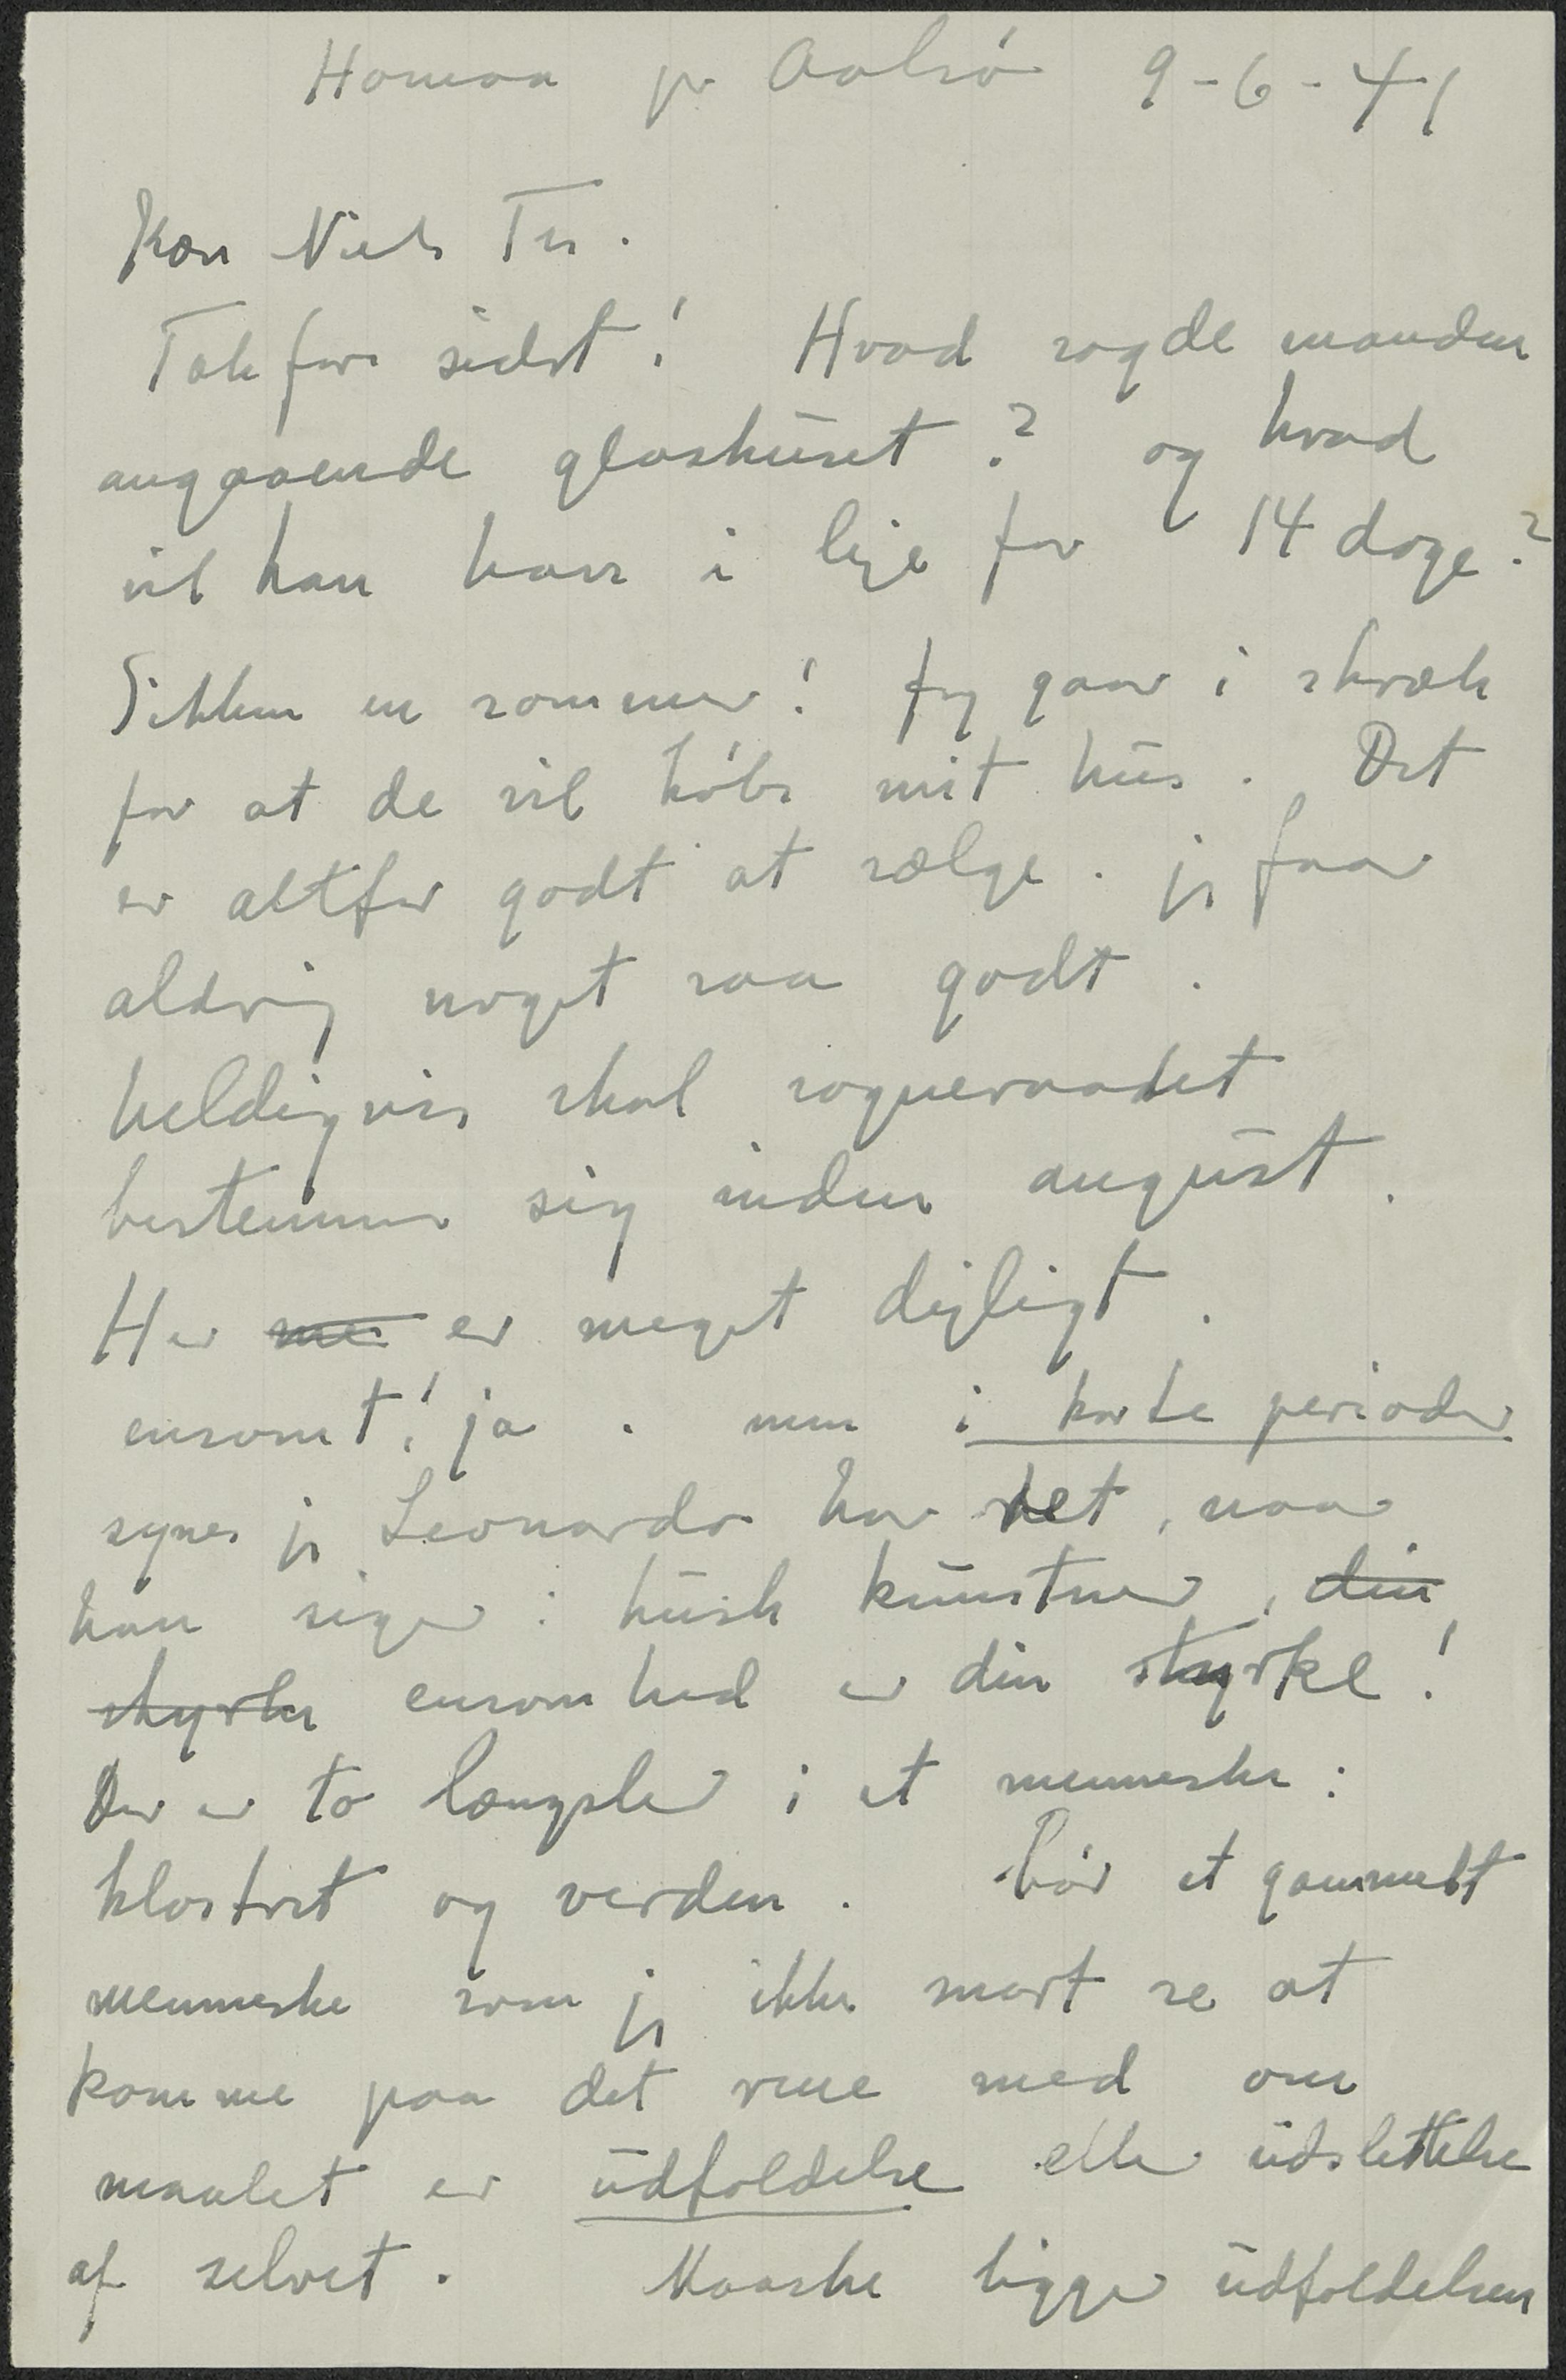 Homaa pr Aalsø 9-6-41
Kære Niels Th.
Tak for sidst! Hvad sagde manden
angaaende glashuset? og hvad
vil han have i leje for 14 dage?
Sikken en sommer! Jeg gaar i skræk
for at de vil købe mit hus. Det
er altfor godt at sælge. jeg faar
aldrig noget saa godt.
heldigvis skal sogneraadet
bestemme sig inden august.
Her me er meget dejligt.
ensomt! ja. men i korte perioder
synes jeg Leonardo har ret, naar
han siger: husk kunstner, din
styrke ensomhed er din styrke!
Der er to længsler i et menneske:
klostret og verden. bør et gammelt
menneske som jeg ikke snart se at
komme paa det rene med om
maalet er udfoldelse eller udslettelse
af selvet. Maaske ligger udfoldelsen